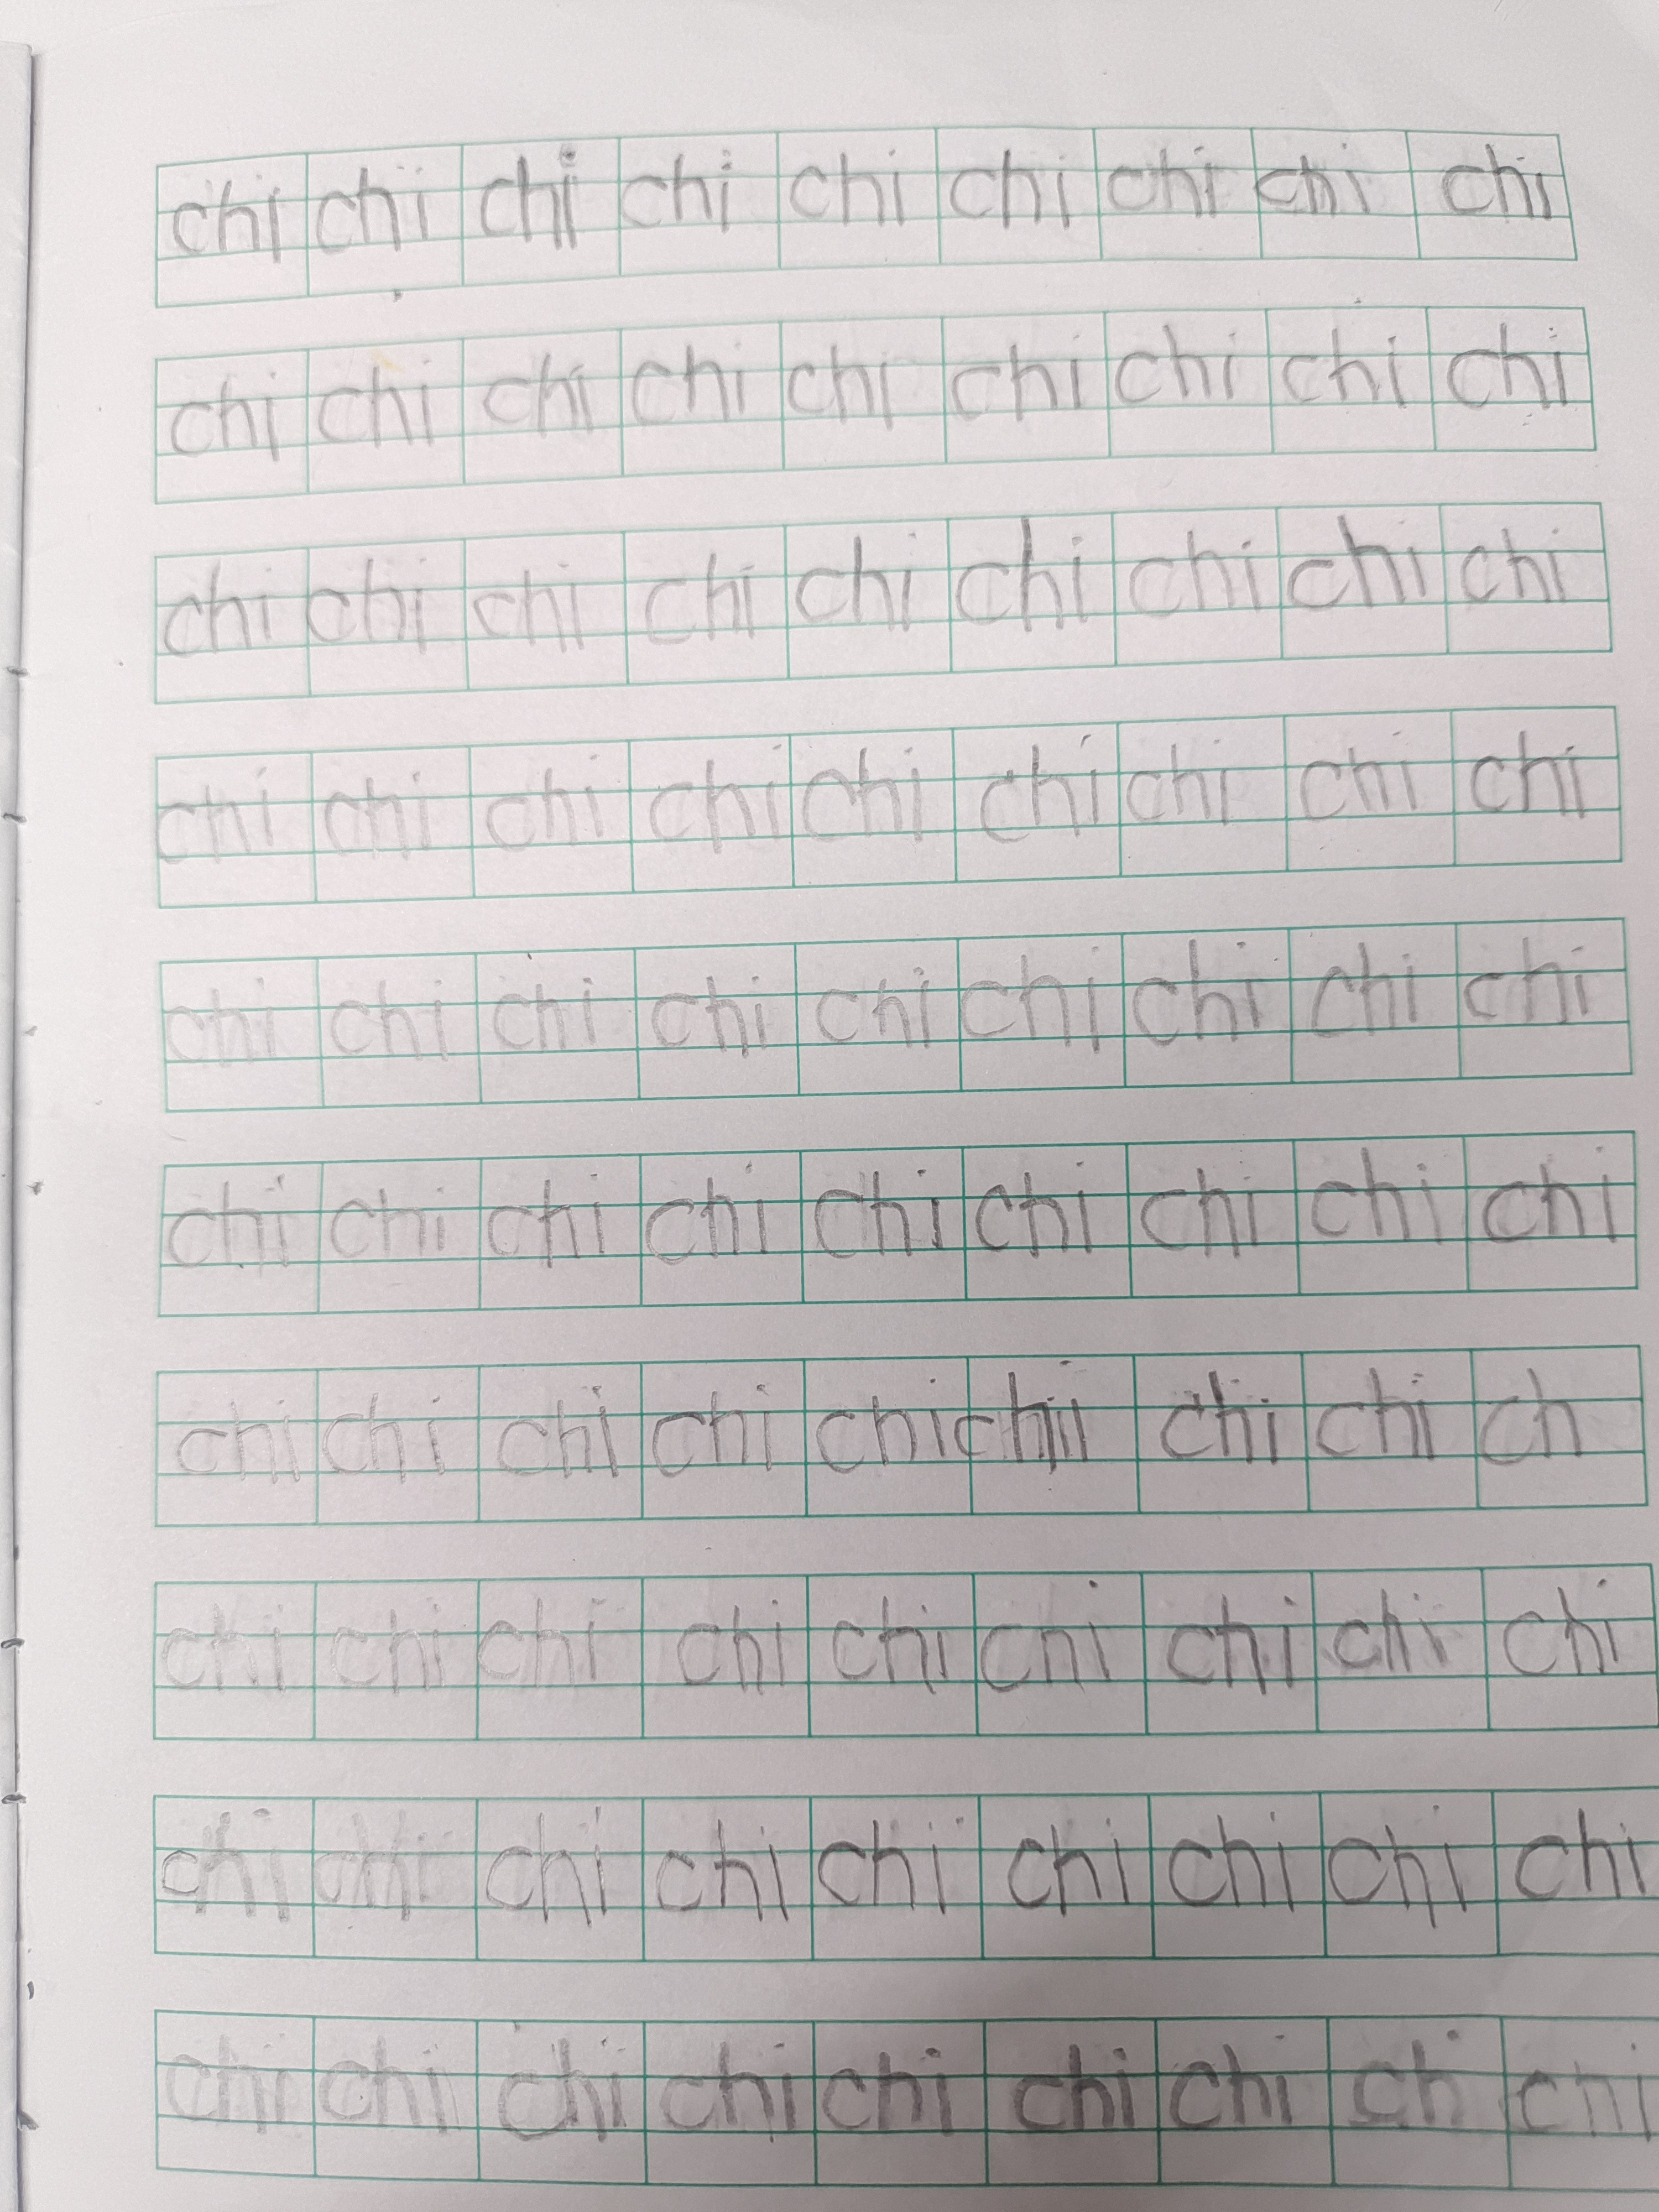 chi chi chi chi chi chi chi chi chi
chi chi chi chi chi chi chi chi chi
chi chi chi chi chi chi chi chi chi
chi chi chi chi chi chi chi chi chi
chi chi chi chi chi chi chi chi chi
chi chi chi chi chi chi chi chi chi
chi chi chi chi chi chii chi chi ch
chi chi chi chi chi chi chi chi chi
chi chi chi chi chi chi chi chi chi
chi chi chi chi chi chi chi chi chi